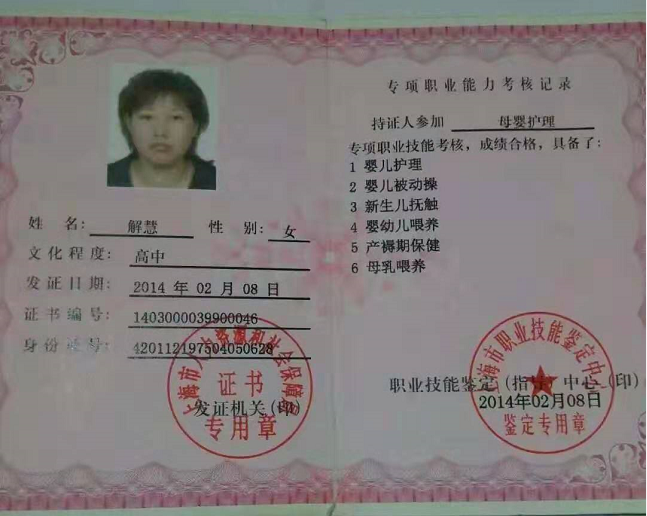 姓 名: 解慧 性 别: 女
文化程度: 高中
发证日期: 2014 年 02 月 08 日
证书编号: 1403000039900046
身份证号: 420112197504050628
上海市人力资源和社会保障局
证书
发证机关(印)
专用章
专项职业能力考核记录
持证人参加 母婴护理
专项职业技能考核，成绩合格，具备了:
1 婴儿护理
2 婴儿被动操
3 新生儿抚触
4 婴幼儿喂养
5 产褥期保健
6 母乳喂养
上海市职业技能鉴定中心
职业技能鉴定(指导)中心(印)
2014年02月08日
鉴定专用章